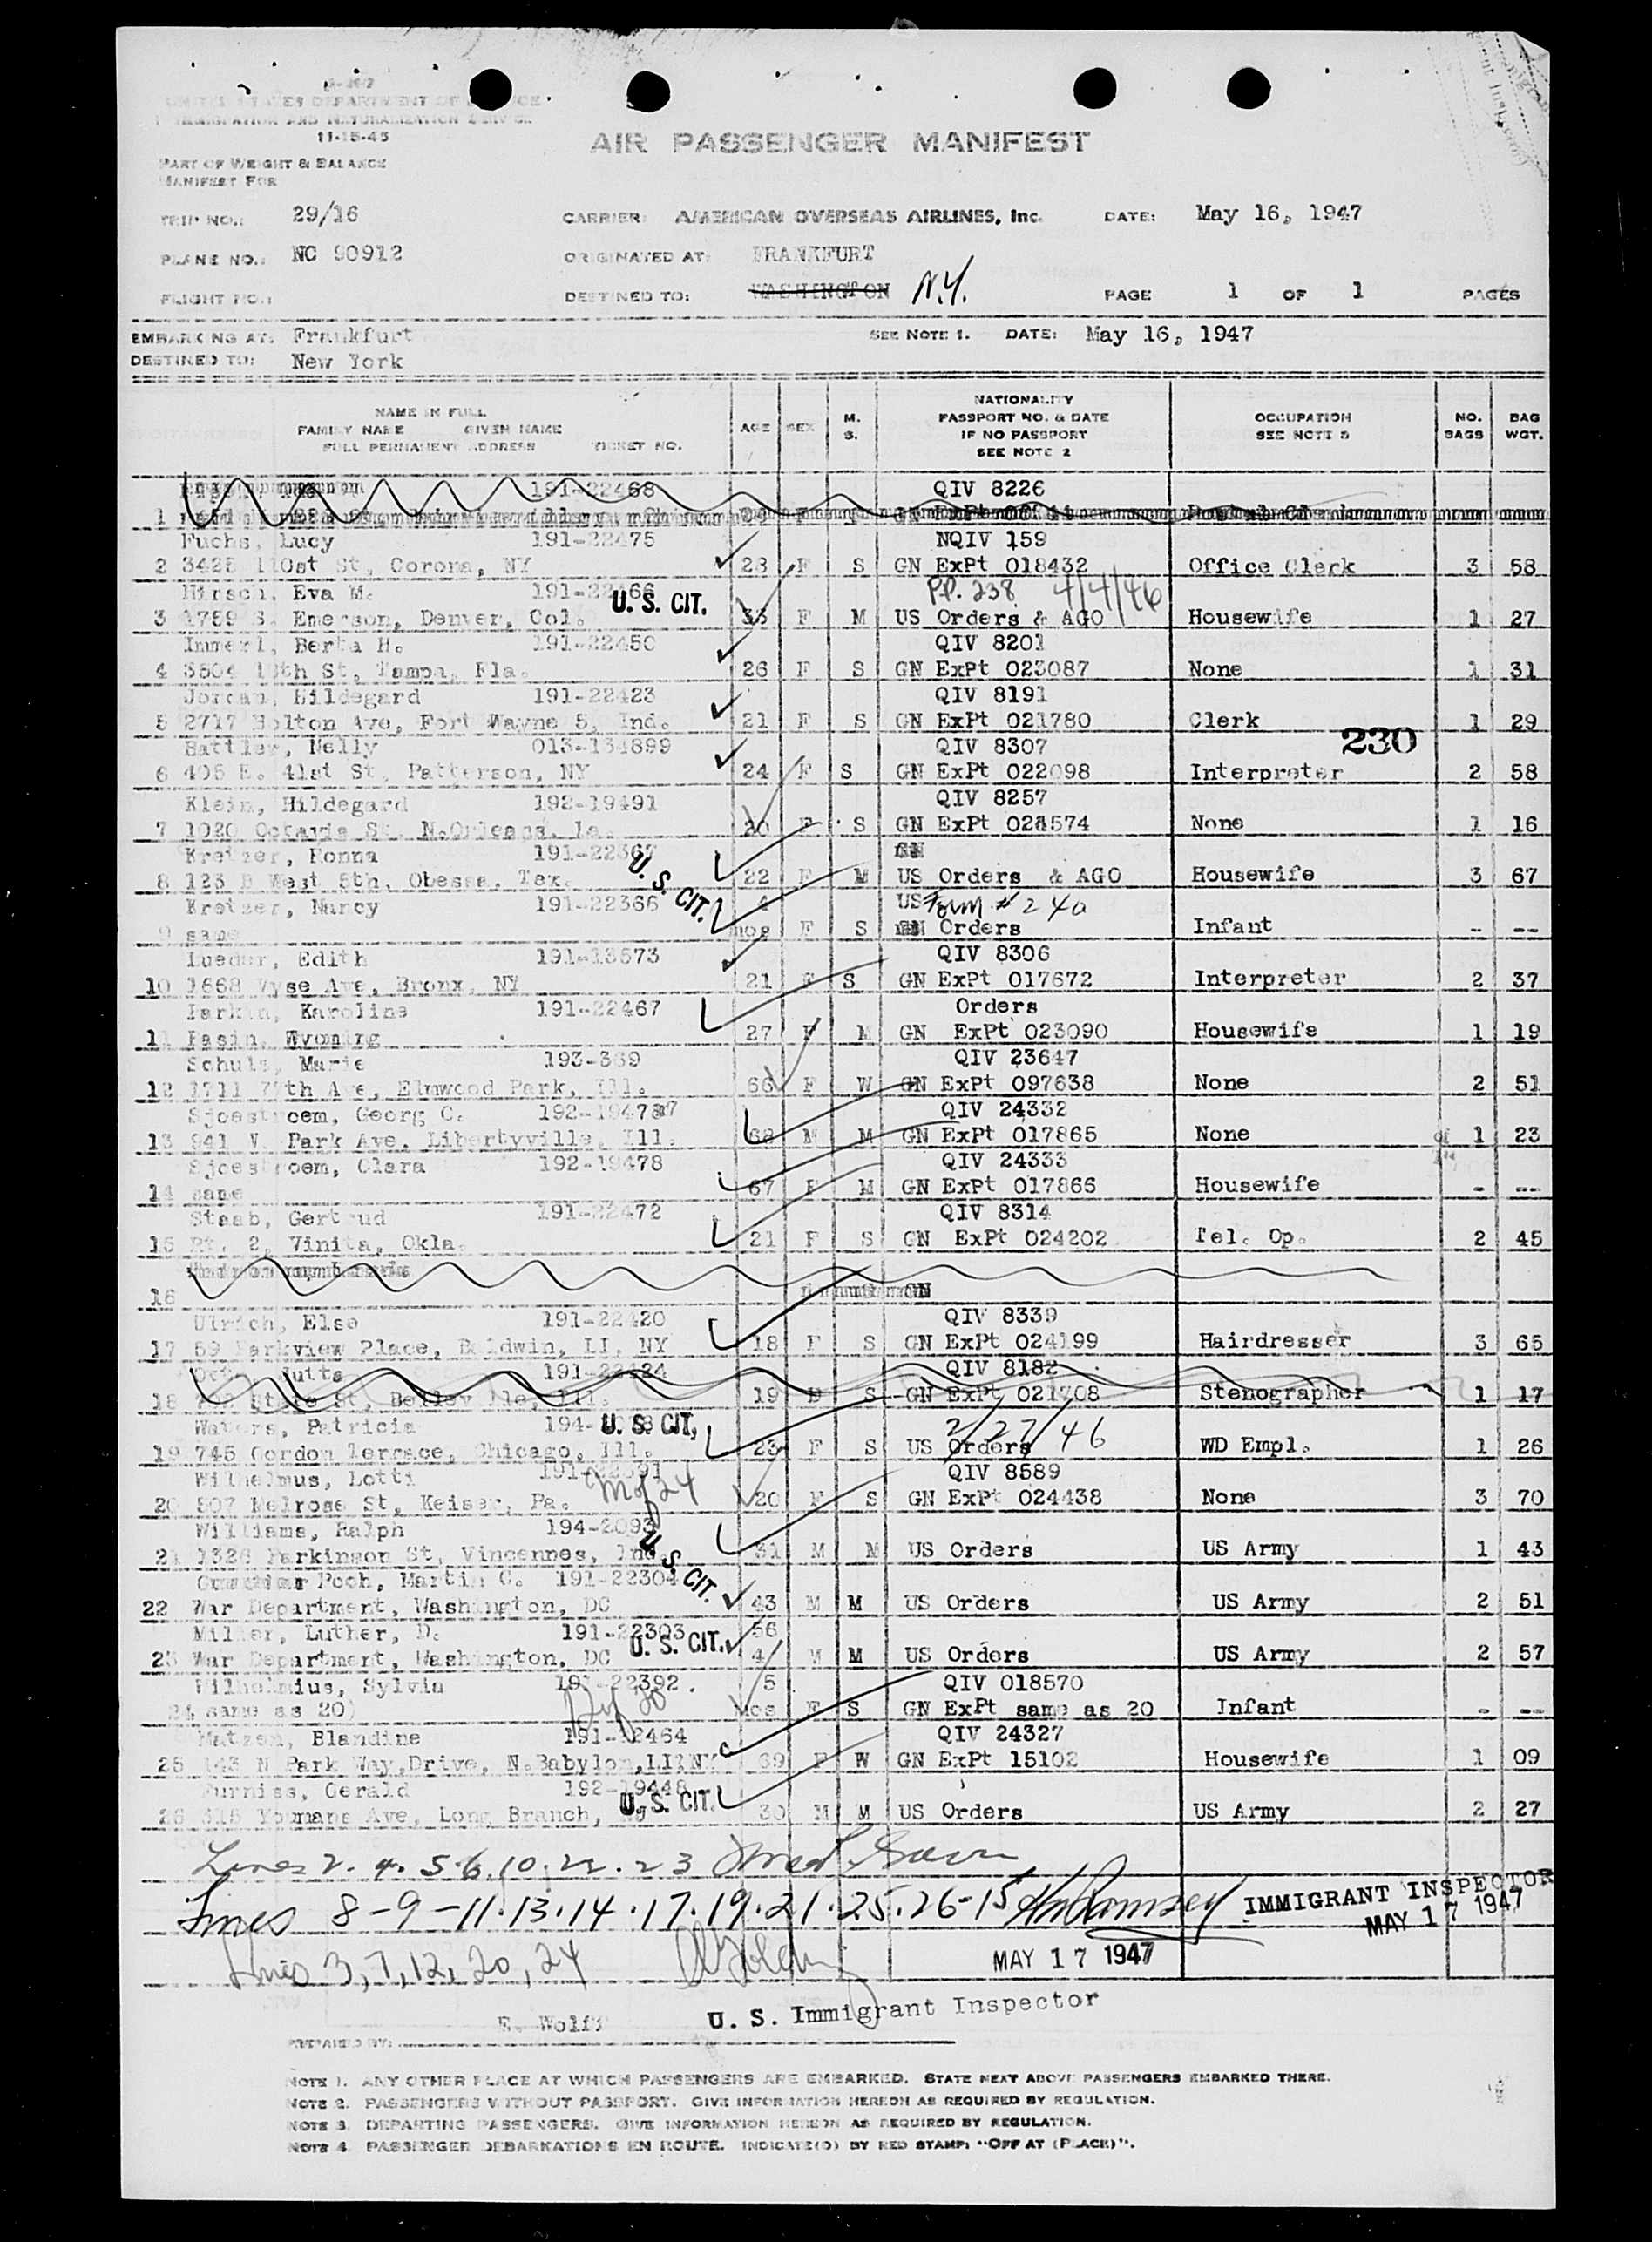 11-15-45
AIR PASSENGER MANIFEST
PART OF WEIGHT & BALANCE
MANIFEST FOR
TRIP NO.: 29/16 CARRIER: AMERICAN OVERSEAS AIRLINES, Inc. DATE: May 16, 1947
PLANE NO.: NC 90912 ORIGINATED AT: FRANKFURT
FLIGHT NO.: DESTINED TO: WASHINGTON N.Y. PAGE 1 OF 1 PAGES
EMBARKING AT: Frankfurt SEE NOTE 1. DATE: May 16, 1947
DESTINED TO: New York
NAME IN FULL
FAMILY NAME GIVEN NAME
FULL PERMANENT ADDRESS TICKET NO.
AGE SEX M. S.
NATIONALITY
PASSPORT NO. & DATE
IF NO PASSPORT
SEE NOTE 2
OCCUPATION
NO. BAGS
BAG WGT.
191-22468 QIV 8226
1
Fuchs, Lucy 191-22475 NQIV 159
2 3425 110st St, Corona, NY 28 F S GN ExPt 018432 Office Clerk 3 58
Hirsch, Eva M. U. S. CIT. PP. 238 4/4/46
3 1759 S. Emerson, Denver, Col. F M US Orders & AGO Housewife 1 27
Immerl, Berta H. 191-22450 QIV 8201
4 3504 St, Tampa, Fla. 26 F S GN ExPt 023087 None 1 31
Jordan, Hildegard 191-22423 QIV 8191
5 2717 Holton Ave, Fort Wayne 5, Ind. 21 F S GN ExPt 021780 Clerk 1 29
230
Nelly 013-134899 QIV 8307
6 405 E. 41st St, Patterson, NY 24 F S GN ExPt 022098 Interpreter 2 58
Klein, Hildegard 192-19491 QIV 8257
7 1020 St. N.Orleans, La. 20 F S GN ExPt 028574 None 1 16
Kretzer, Honna 191-22367
8 123 B West 5th, Obessa, Tex. 22 F M US Orders & AGO Housewife 3 67
Kretzer, Nancy 191-22366 U. S. CIT. 4 US Form # 240
9 same mos F S Orders Infant - --
Lueder, Edith 191-13573 QIV 8306
10 1668 Vyse Ave, Bronx, NY 21 F S GN ExPt 017672 Interpreter 2 37
Karoline 191-22467 Orders
11 Basin, Wyoming 27 F M GN ExPt 023090 Housewife 1 19
Schulz, Marie 193-369 QIV 23647
12 1711 77th Ave, Elmwood Park, Ill. 66 F W GN ExPt 097638 None 2 51
Sjoestroem, Georg C. QIV 24332
13 941 W. Park Ave, Libertyville, Ill. 68 M M GN ExPt 017865 None 1 23
Sjoestroem, Clara 192-19478 QIV 24333
14 same 67 F M GN ExPt 017866 Housewife - --
Staab, Gertrud 191-22472 QIV 8314
15 Rt. 2, Vinita, Okla. 21 F S GN ExPt 024202 Tel. Op. 2 45
16 GN
Ulrich, Else 191-22420 QIV 8339
17 59 Parkview Place, Baldwin, LI, NY 18 F S GN ExPt 024199 Hairdresser 3 65
191-22424 QIV 8182
18 State St, Belleville, Ill. 19 S GN ExPt 021708 Stenographer 1 17
Waters, Patricia 194- U. S. CIT. 2/27/46
19 745 Gordon Terrace, Chicago, Ill. 23 F S US Orders WD Empl. 1 26
Wilhelmus, Lotti QIV 8589
20 807 Melrose St, Keiser, Pa. M of 24 20 F S GN ExPt 024438 None 3 70
Williams, Ralph 194-2093
21 1326 Parkinson St, Vincennes, Ind. U. S. CIT. 31 M M US Orders US Army 1 43
Poch, Martin C. 191-22304
22 War Department, Washington, DC 43 M M US Orders US Army 2 51
Miller, Luther, D. 191-22303 U. S. CIT. 56
23 War Department, Washington, DC M M US Orders US Army 2 57
Wilhelmius, Sylvia 191-22392 5 QIV 018570
24 same as 20) mos F S GN ExPt same as 20 Infant - --
Matzen, Blandine QIV 24327
25 143 N Park Way,Drive, N.Babylon,LI,NY 69 F W GN ExPt 15102 Housewife 1 09
Furniss, Gerald 192-19448 U. S. CIT.
26 Youmans Ave, Long Branch, 30 M M US Orders US Army 2 27
Lines 2. 4. 5. 6. 10. 22. 23
Lines 8-9-11.13.14.17.19.21.25.26-15 IMMIGRANT INSPECTOR
MAY 17 1947
Lines 3, 7, 12, 20, 24 MAY 17 1947
E. Wolff U. S. Immigrant Inspector
PREPARED BY:
NOTE 1. ANY OTHER PLACE AT WHICH PASSENGERS ARE EMBARKED. STATE NEXT ABOVE PASSENGERS EMBARKED THERE.
NOTE 2. PASSENGERS WITHOUT PASSPORT. GIVE INFORMATION HEREON AS REQUIRED BY REGULATION.
NOTE 3. DEPARTING PASSENGERS. GIVE INFORMATION HEREON AS REQUIRED BY REGULATION.
NOTE 4. PASSENGER DEBARKATIONS EN ROUTE. INDICATE(D) BY RED STAMP: "OFF AT (PLACE)".